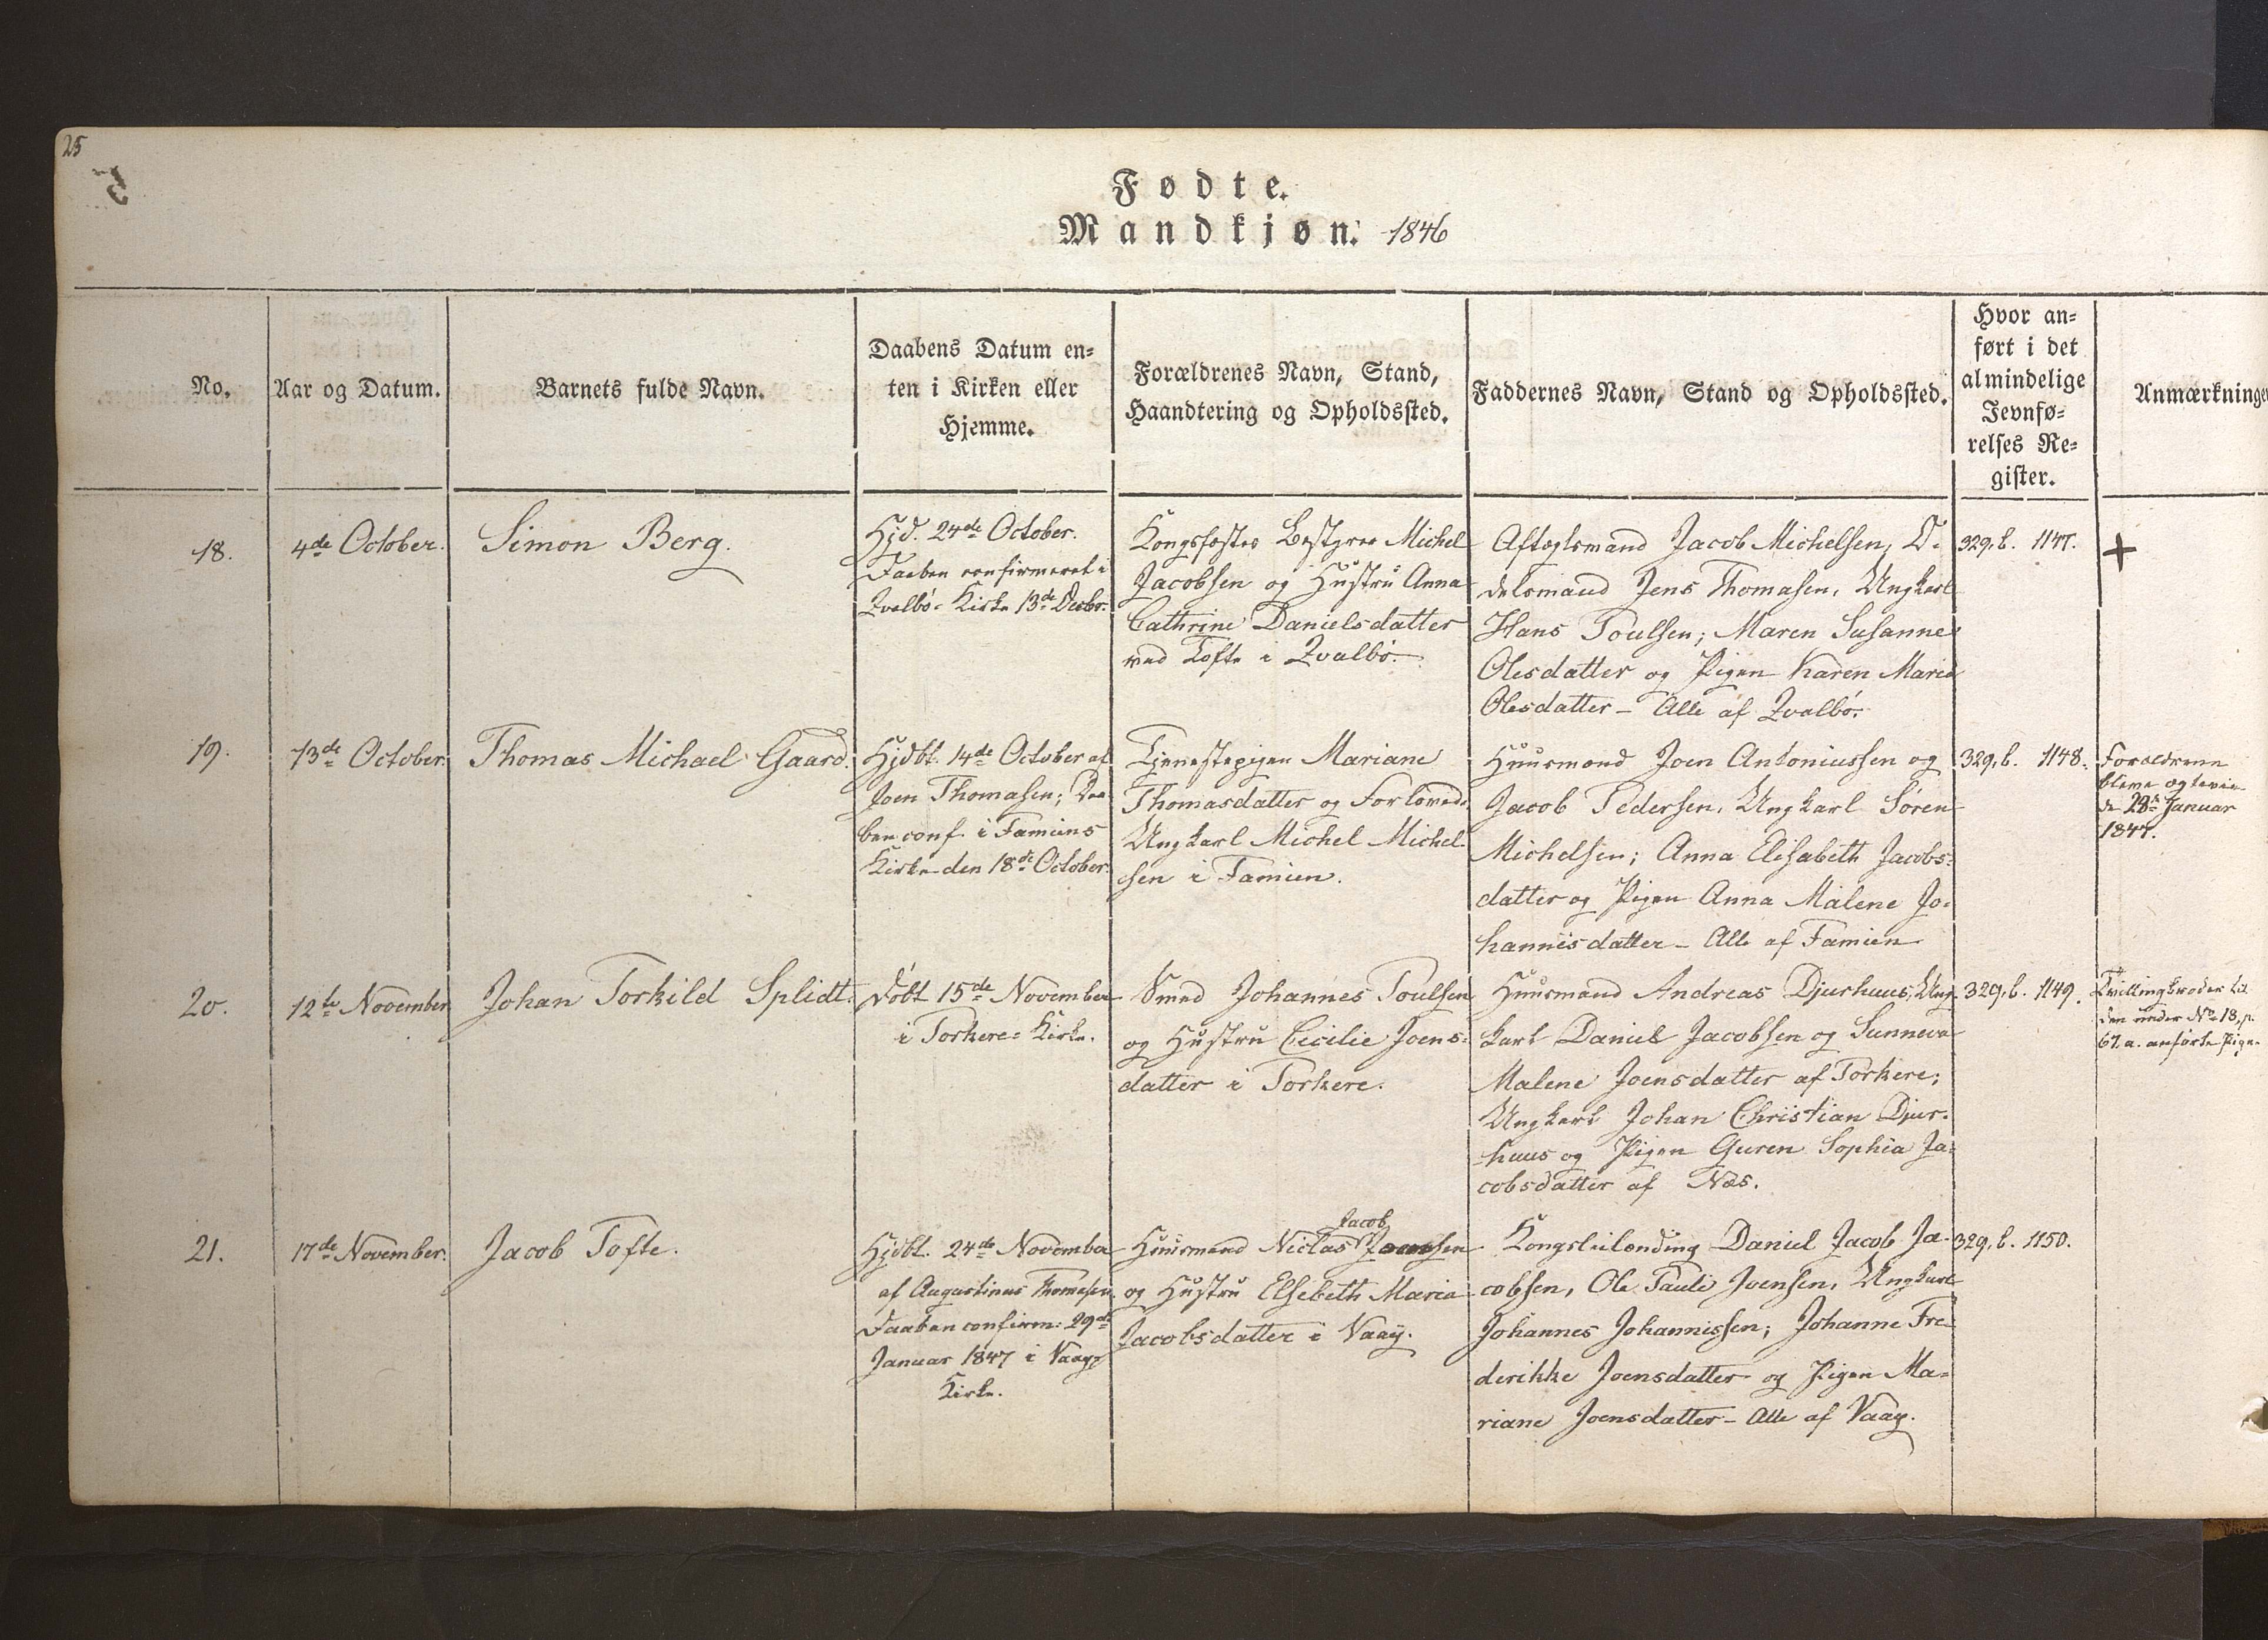 25
Fødte.
Mandkjøn. 1846
No.
Aar og Datum.
Barnets fulde Navn.
Daabens Datum en=
ten i Kirken eller
Hjemme.
Forældrenes Navn, Stand,
Haandtering og Opholdssted.
Faddernes Navn, Stand og Opholdssted.
Hvor an=
ført i det
almindelige
Jevnfø=
relses Re=
gister.
Anmærkninge
18.
4de October.
Simon Berg.
Hjd. 24de October.
Daaben confirmeret i
Qvalbø= Kirke 13de Decbr.
Kongsfæster Michel
Jacobsen og Hustru Anna
Cathrine Danielsdatter
ved Tofte i Qvalbø.
Aftægtsmand Jacob Michelsen, O=
delsmand Jens Thomasen, Ungkarl
Hans Poulsen; Maren Susanne
Olesdatter og Pigen Karen Maria
Olesdatter - Alle af Qvalbø.
329, b. 1147.
+
19.
13de October.
Thomas Michael Gaard.
Hjdbt. 14de October af
Joen Thomasen; Daa=
ben conf. i Famiens
Kirke den 18de October.
Tjenestepigen Mariane
Thomasdatter og Forlovede
Ungkarl Michel Michel=
sen i Famien.
Huusmand Joen Antoniussen og
Jacob Pedersen, Ungkarl Søren
Michelsen; Anna Elisabeth Jacobs=
datter og Pigen Anna Malene Jo=
hannisdatter - Alle af Famien
329, b. 1148.
Forældrene
bleve ægtevie=
de 28de Januar
1847.
20.
12te November
Johan Torkild Splidt.
Døbt 15de November
i Porkere= Kirke.
Smed Johannes Poulsen
og Hustru Cicilie Joens=
datter i Porkere.
Huusmand Andreas Djurhuus, Ung=
karl Daniel Jacobsen og Sunneva
Malene Joensdatter af Porkere;
Ungkarl Johan Christian Djur=
huus og Pigen Guren Sophia Ja=
cobsdatter af Næs.
329, b. 1149.
Tvillingbroder til
den under No 18, p.
67. a. anførte Pige.
21.
17de November.
Jacob Tofte.
Hjdbt. 24de November
af Augustinus Thomasen
Daaben confirm: 29de
Januar 1847 i Vaags
Kirke.
Huusmand Niclas Jacob
og Hustru Elsebeth Maria
Jacobsdatter i Vaag.
Kongsleilænding Daniel Jacob Ja=
cobsen, Ole Pauli Joensen, Ungkarl
Johannes Johannissen; Johanne Fre=
derikke Joensdatter og Pigen Ma=
riane Joensdatter - Alle af Vaag.
329, b. 1150.